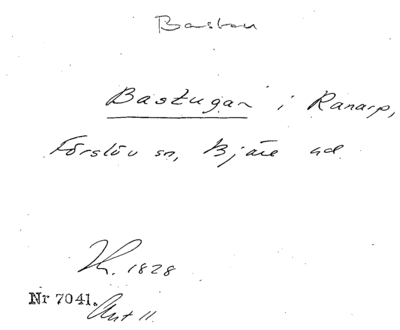 Bastun
Bastugan i Ranarp,
Förslöv sn, Bjäre hd
Kr. 1828
Nr 7041.
Ant 11.